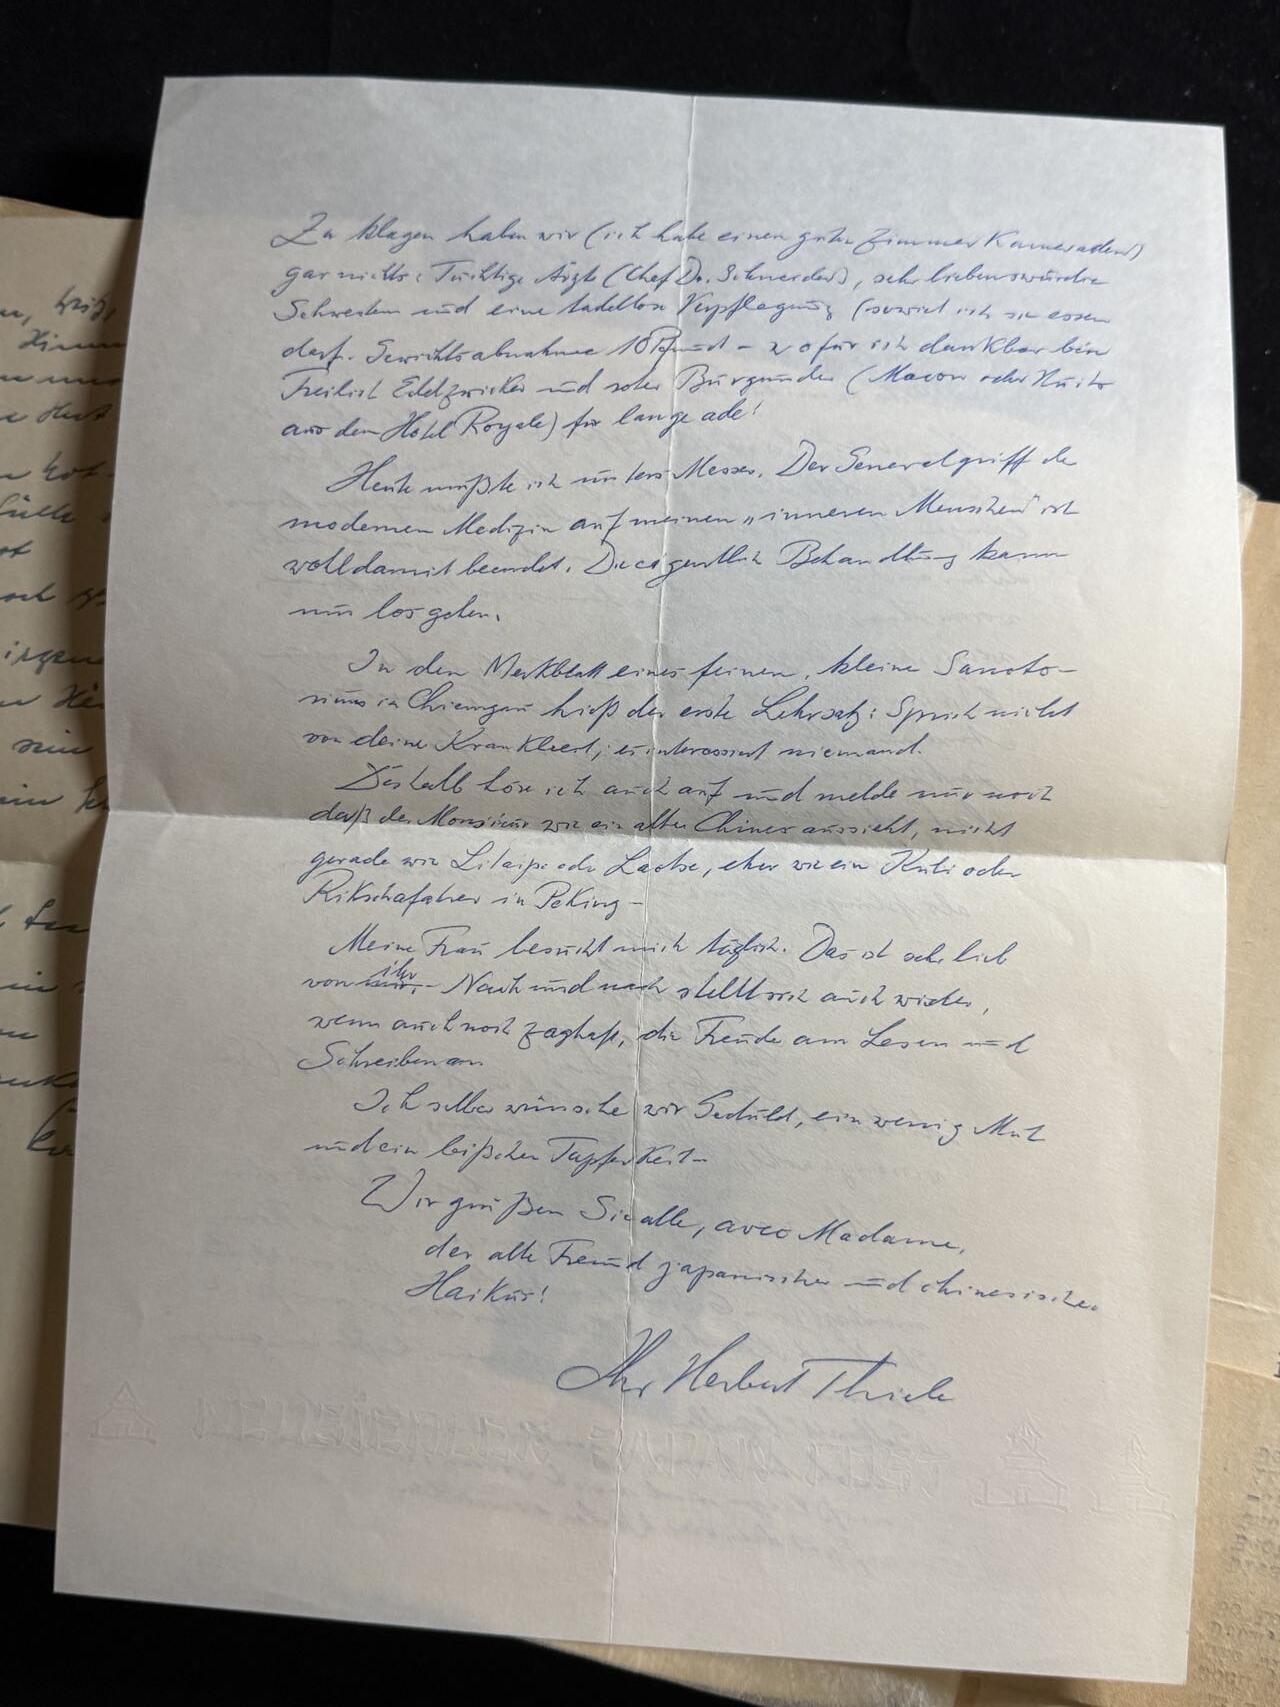 Zu klagen haben wir (ich habe einen guten Zimmer Kameraden)
gar nichts: Tüchtige Ärzte (Chef Dr. Schneider), sehr liebenswürdige
Schwestern und eine tadellose Verpflegung (soviel ich sie essen
darf. Gewichtsabnahme 10 Pfund – wofür ich dankbar bin
Freilich Edelzwicker und roter Burgunder (Macon oder Nuits
aus dem Hotel Royale) für lange ade!
Heute mußte ich unters Messer. Der Generalgriff der
modernen Medizin auf meinen „inneren Menschen" ist
wohl damit beendet. Die eigentliche Behandlung kann
nun los gehen.
In dem Merkblatt eines feinen, kleinen Sanato-
riums in Chiemgau hieß der erste Lehrsatz: Sprich nicht
von deiner Krankheit, es interessiert niemand.
Deshalb höre ich auch auf und melde nur noch
daß der Monsieur wie ein alter Chinese aussieht, nicht
gerade wie Litaipe oder Laotse, eher wie ein Kuli oder
Rikschafahrer in Peking –
Meine Frau besucht mich täglich. Das ist sehr lieb
von ihr. – Nach und nach stellt sich auch wieder,
wenn auch noch zaghaft, die Freude am Lesen und
Schreiben an.
Ich selber wünsche mir Geduld, ein wenig Mut
und ein bißchen Tapferkeit –
Wir grüßen Sie alle, avec Madame,
der alte Freund japanischer und chinesischer
Haikus!
Ihr Herbert Thiele